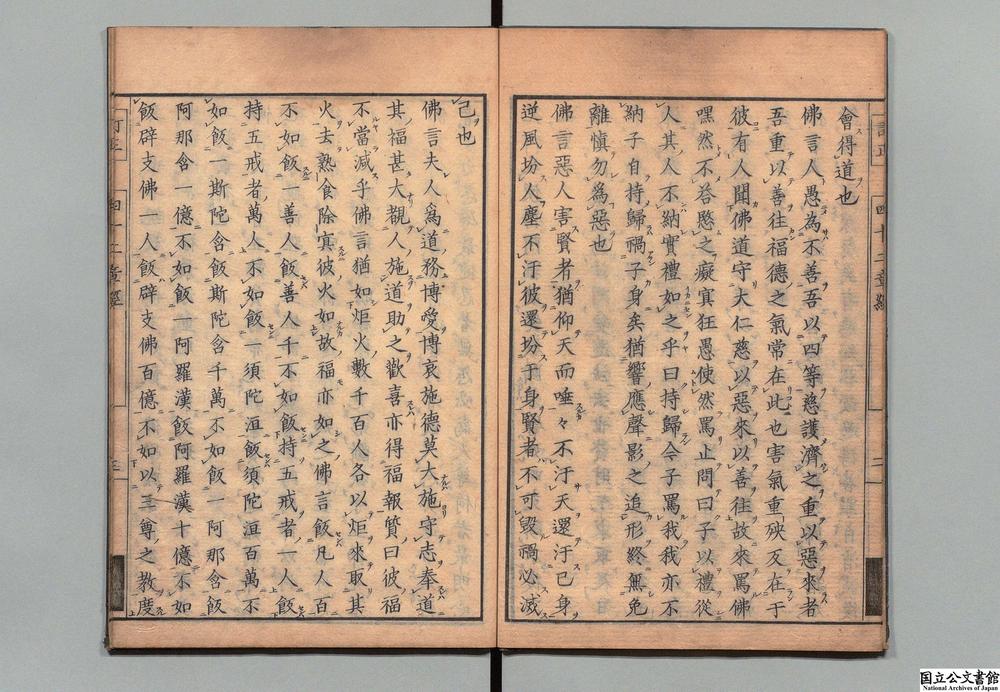 會得道也
佛言人愚為不善吾以四等慈護濟之重以惡來者
吾重以善往福德之氣常在此也害氣重殃反在于
彼有人聞佛道守大仁慈以惡來以善往故來罵佛
嘿然不荅愍之癡冥狂愚使然罵止問曰子以禮從
人其人不納實禮如之乎曰持歸今子罵我我亦不
納子自持歸禍子身矣猶響應聲影之追形終無免
離慎勿為惡也
佛言惡人害賢者猶仰天而唾々不汙天還汙己身
逆風坋人塵不汙彼還坋于身賢者不可毀禍必滅
己也
佛言夫人為道務博愛博哀施德莫大施守志奉道
其福甚大覩人施道助之歡喜亦得福報質曰彼福
不當減乎佛言猶如炬火數千百人各以炬來取其
火去熟食除冥彼火如故福亦如之佛言飯凡人百
不如飯一善人飯善人千不如飯持五戒者一人飯
持五戒者萬人不如飯一須陀洹飯須陀洹百萬不
如飯一斯陀含飯斯陀含千萬不如飯一阿那含飯
阿那含一億不如飯一阿羅漢飯阿羅漢十億不如
飯辟支佛一人飯辟支佛百億不如以三尊之教度
四十二章經
二
四十二章經
三
国立公文書館
National Archives of Japan